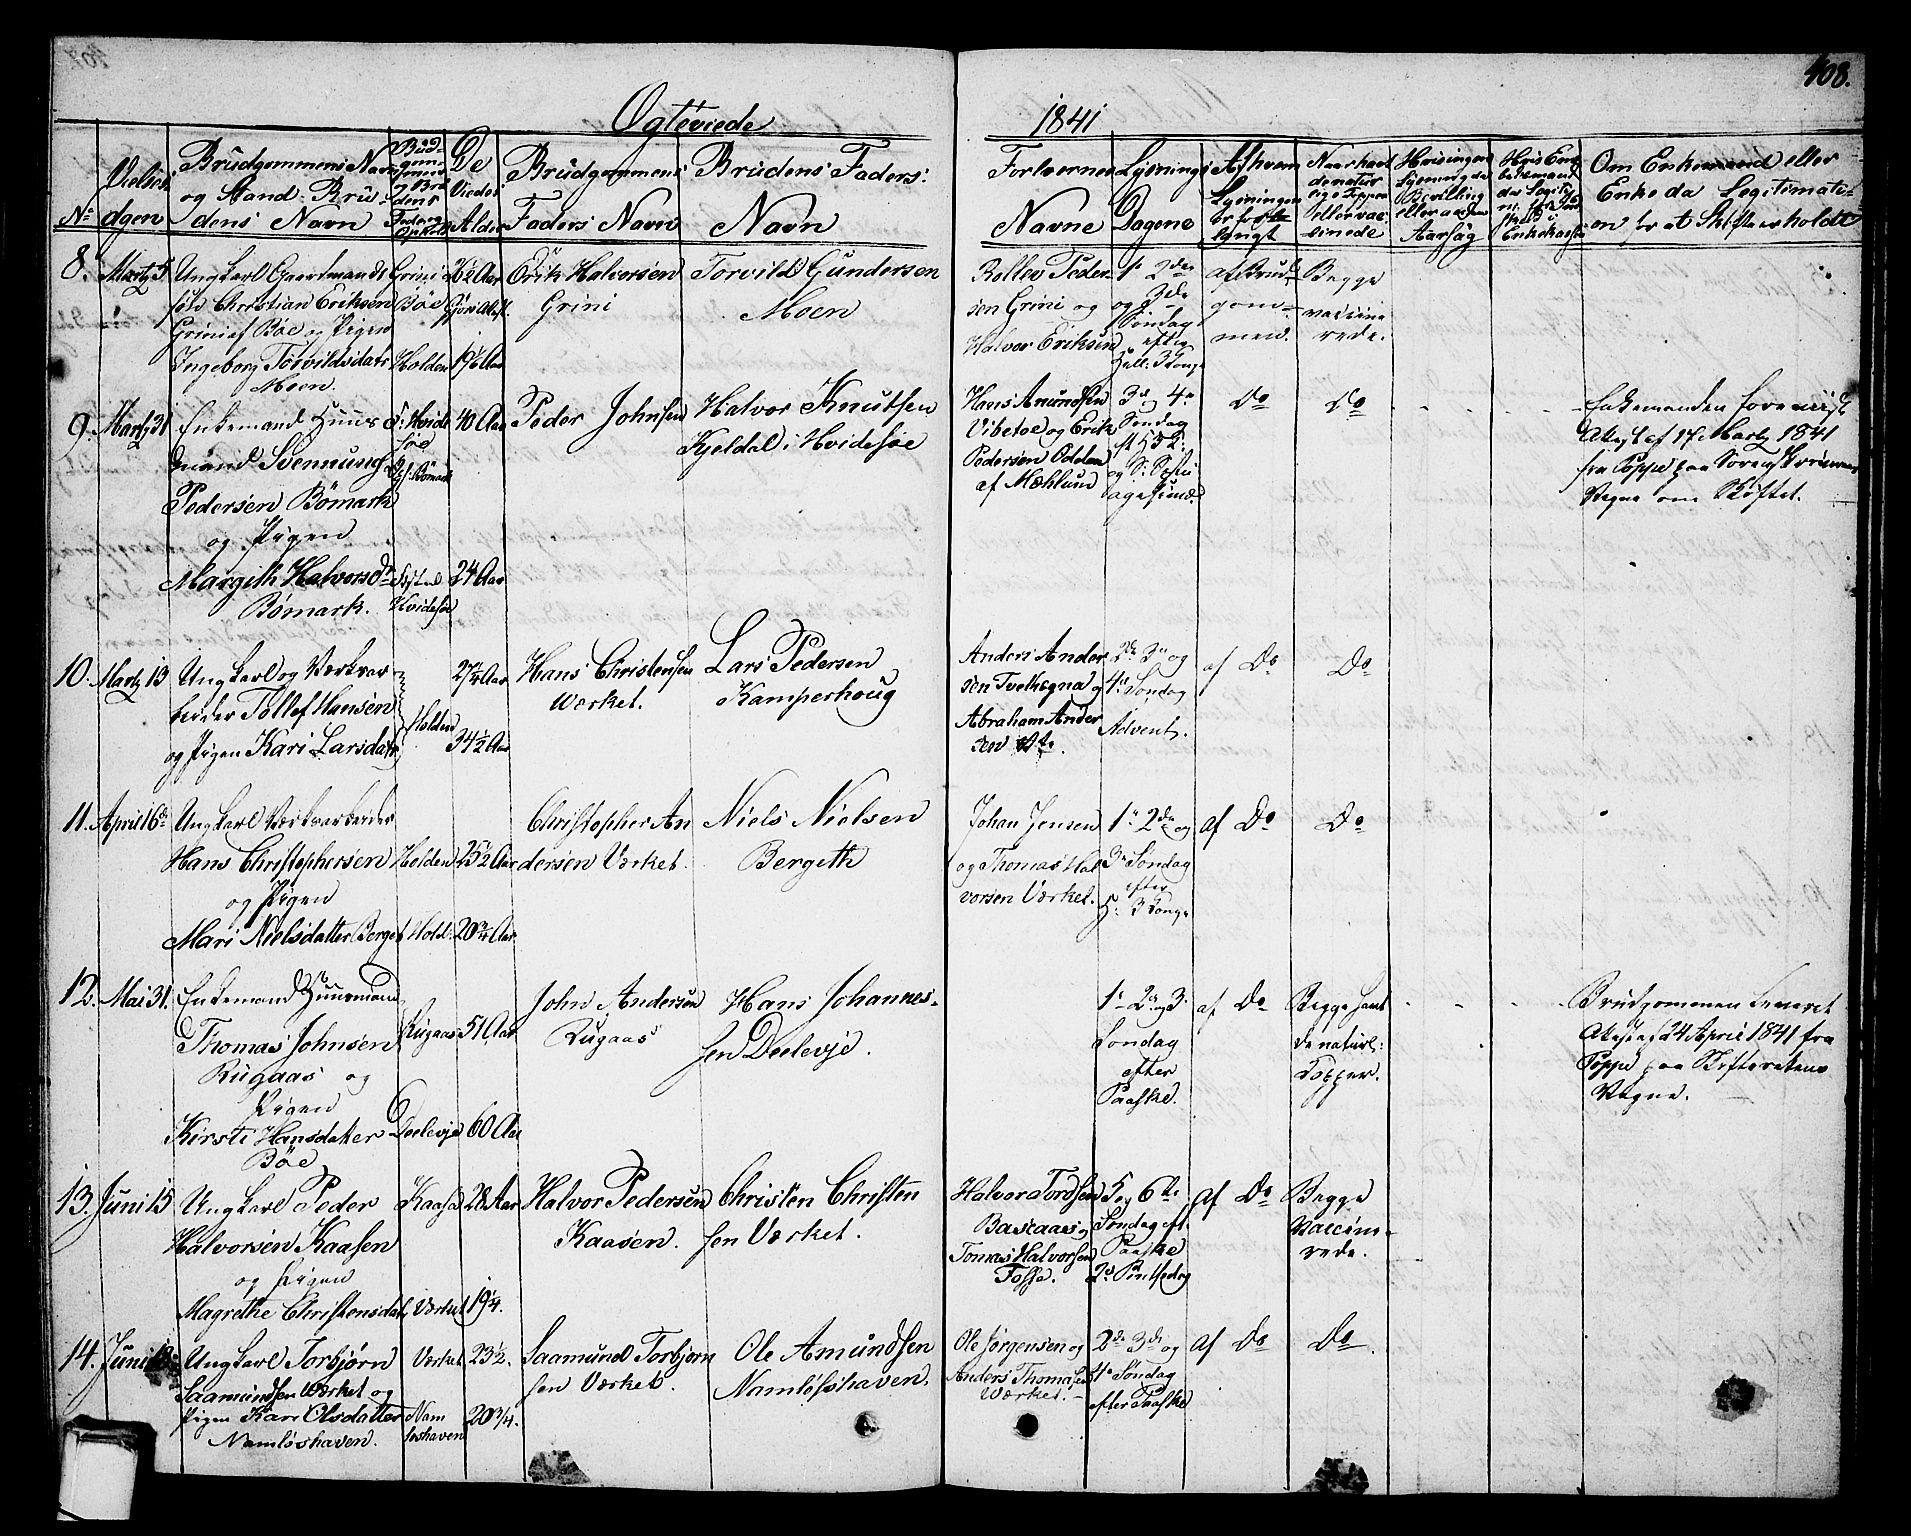 408.
Ægteviede
1841
No
Vielses
dgen
Brudgommens Navn
og Stand. Bru-
dens Navn
De
Viedes
Alder
Brudgommens
Faders Navn
Brudens Faders
Navn
Forlovernes
Navne
Lysnings
Dagene
Af hvem
Lysningen
er forlangt
Om Enkemand eller
Enke da Legitimati-
on for at Skifte er holdt
8. Martz 5
Ungkarl Gaardmands
søn Christian Eriksen
Grini af Bøe og Pigen
Ingeborg Torvildsdatr
Moen.
Grini
Bøe
Holden
Erik Halvorsen
Grini
Torvild Gundersen
Moen
Rollev Peder
sen Grini og
Halvor Eriksen
1ste 2den
og 3die
Søndag
efter
Hell. 3 Konge
af Brud
gom-
men.
Begge
vaccine
rede.
9. Martz 31
Enkemand Huus
mand Svennung
Pedersen Bømark
og Pigen
Margith Halvorsdr
Bømark.
Hvide
søe
Bømark
Hvidesøe
40 Aar
24 Aar
Peder Johnsen
Halvor Knutsen
Kjeldal i Hvidesøe
Hans Anundsen
Vibetoe og Erik
Pedersen Odden
af Mæhlum
3de og 4de
Søndag
Do
Do
Enkemanden foreviist
Attest af 17 Martz 1841
fra Poppe paa Sorenskriverens
Vegne om Skiftet.
10. Martz 13
Ungkarl og Værksar
beider Tollef Hansen
og Pigen Kari Larsdatr
Holden
27 1/4 Aar
34 1/2 Aar
Hans Christensen
Værket.
Lars Pedersen
Kamperhoug
Anders Ander
sen Tvetægna og
Abraham Ander
sen
2den 3die og
4de Søndag
Advent.
af Do
Do
11. April 16de
Ungkarl Værksarbeider
Hans Christophersen
og Pigen
Mari Nielsdatter Berget
Holden
Hold:
25 1/2 Aar
20 3/4 Aar
Christopher An
dersen Værket.
Niels Nielsen
Bergeth
Johan Jensen
og Thomas Hal
vorsen Værket.
1ste 2den og
3die Søndag
efter
H: 3 Konge
af Do
Do
12. Mai 31.
Enkemand Huusmand
Thomas Johnsen
Rugaas og
Pigen
Kirsti Hansdatter
Bøe
Rugaas
Deelevje
51 Aar
60 Aar
John Andersen
Rugaas
Hans Johannes-
sen Deelevje.
1ste 2den og 3die
Søndag
efter
Paaske.
af Do
Begge havt
de naturl:
Kopper.
Brudgommen leveret
Attest af 24 April 1841 fra
Poppe paa Skifterettens
Vegne.
13. Juni 15
Ungkarl Peder
Halvorsen Kaasen
og Pigen
Magrethe Christensdatr
Kaasa
Værket
28 Aar
19 1/4.
Halvor Pedersen
Kaasen.
Christen Christen
sen Værket.
Halvor Tordsen
Baskaas og
Tomas Halvorsen
Fosse.
5 og 6te
Søndag eft
Paaske
2den Pintsedag
af Do
Begge
Vaccine-
rede.
14. Juni
Ungkarl Torbjørn
Saamundsen Værket og
Pigen Kari Olsdatter
Namløshaven.
Værket
Nam
løshaven
23 1/2.
20 3/4.
Saamund Torbjørn
sen Værket.
Ole Amundsen
Namløshaven.
Ole Jørgensen og
Anders Thomasen
Værket.
2den 3die og
4de Søndag
efter Paaske
af Do
Do.